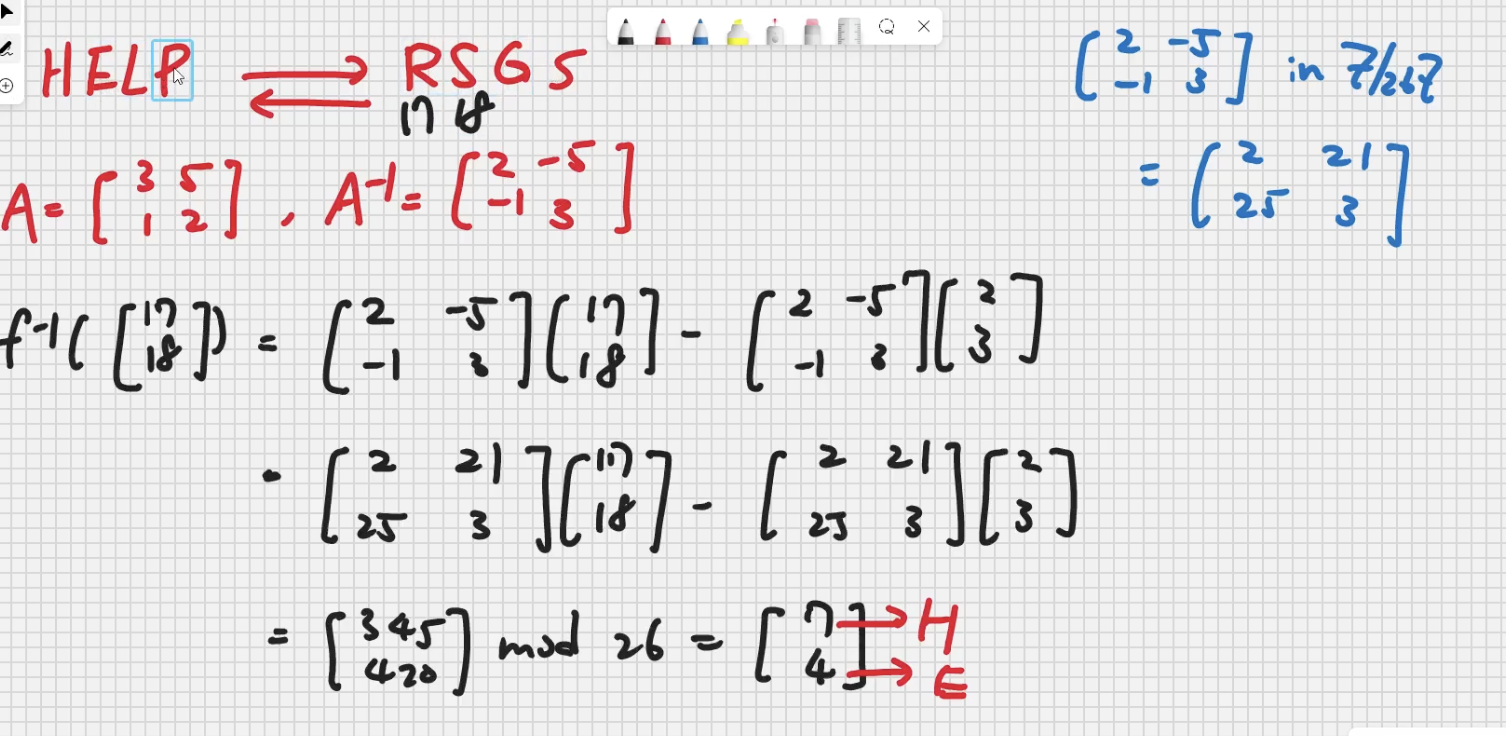 HELP ⇄ RSGS
17 18
A = [3 5; 1 2], A⁻¹ = [2 -5; -1 3]
[2 -5; -1 3] in Z/26Z
= [2 21; 25 3]
f⁻¹([17; 18]) = [2 -5; -1 3][17; 18] - [2 -5; -1 3][2; 3]
= [2 21; 25 3][17; 18] - [2 21; 25 3][2; 3]
= [345; 420] mod 26 = [7; 4] → H → E